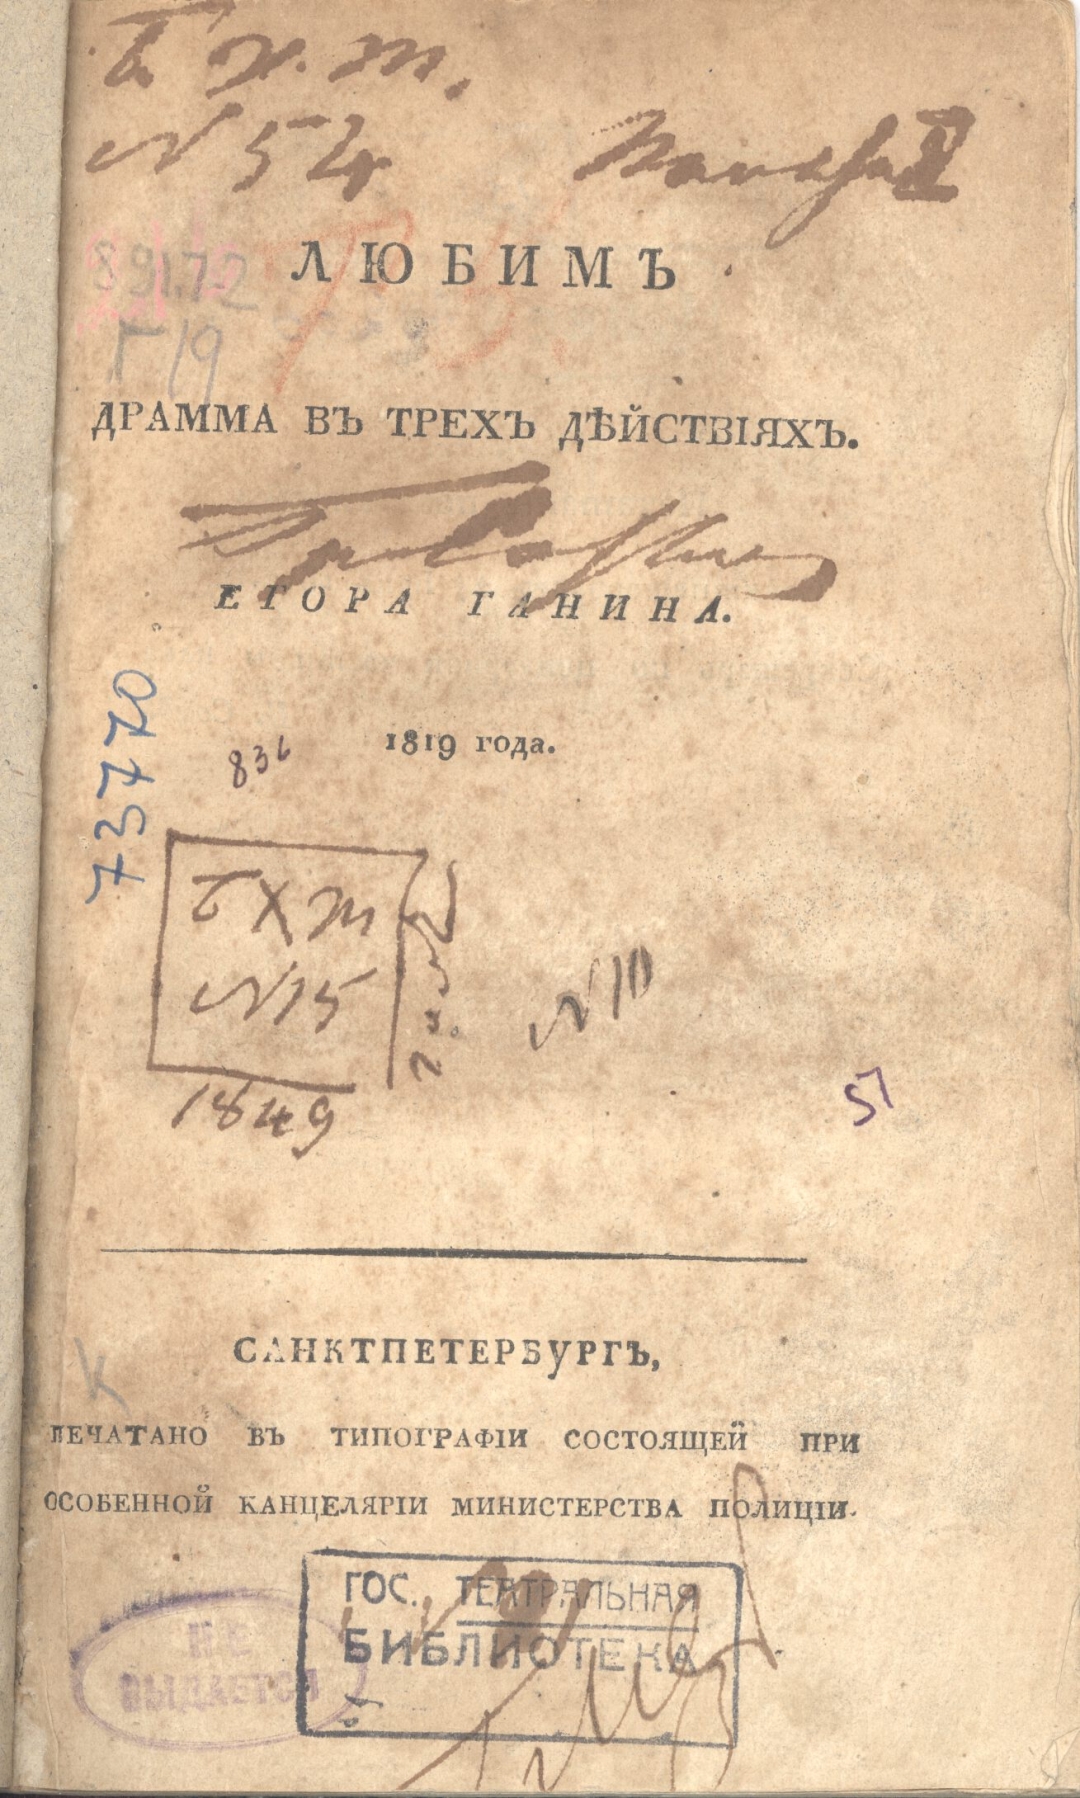 Б. Х. т.
N 54
891.72
Г19
ЛЮБИМЪ
ДРАММА ВЪ ТРЕХЪ ДѢЙСТВІЯХЪ.
ЕГОРА ГАНИНА.
1819 года.
836
73770
Б Х т
N 15
1849
N 10
51
САНКТПЕТЕРБУРГЪ,
ПЕЧАТАНО ВЪ ТИПОГРАФІИ СОСТОЯЩЕЙ ПРИ
ОСОБЕННОЙ КАНЦЕЛЯРІИ МИНИСТЕРСТВА ПОЛИЦІИ.
ГОС. ТЕАТРАЛЬНАЯ
БИБЛИОТЕКА
НЕ
ВЫДАЕТСЯ